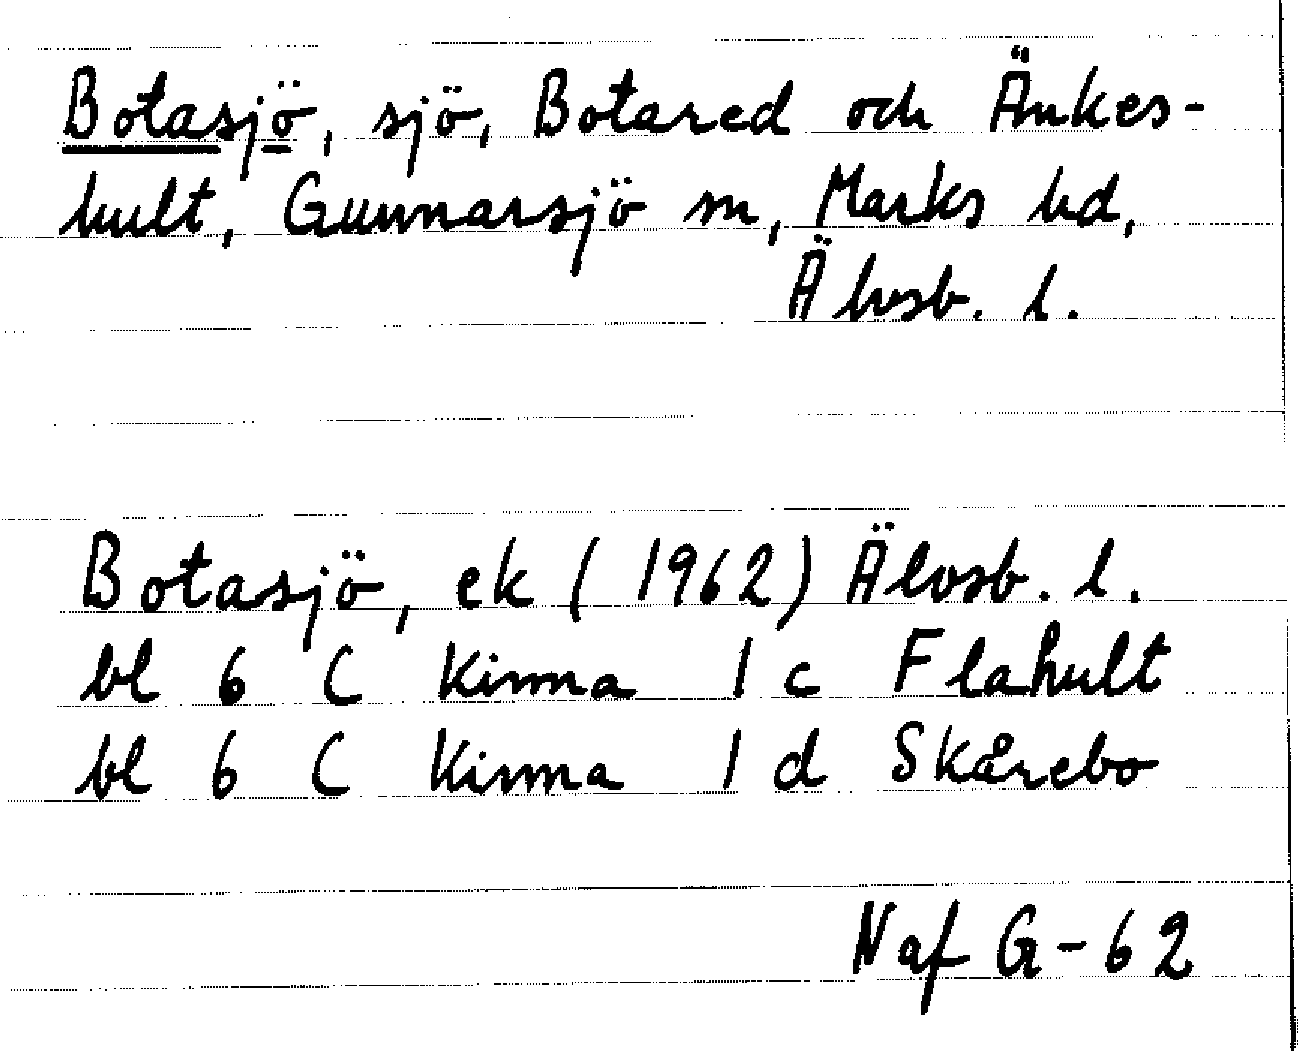 Botasjö, sjö, Botared och Änkes-
hult, Gunnarsjö sn, Marks hd,
Älvsb. l.
Botasjö, ek (1962) Älvsb. l.
bl 6 C Kinna 1 c Flahult
bl 6 C Kinna 1 d Skårebo
Naf G-62